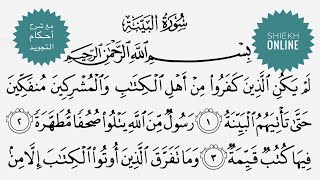 مع شرح
أحكام
التجويد
سُورَةُ الْبَيِّنَةِ
SHIEKH
ONLINE
بِسْمِ اللَّهِ الرَّحْمَٰنِ الرَّحِيمِ
لَمْ يَكُنِ الَّذِينَ كَفَرُوا مِنْ أَهْلِ الْكِتَابِ وَالْمُشْرِكِينَ مُنفَكِّينَ
حَتَّىٰ تَأْتِيَهُمُ الْبَيِّنَةُ ١ رَسُولٌ مِّنَ اللَّهِ يَتْلُوا صُحُفًا مُّطَهَّرَةً ٢
فِيهَا كُتُبٌ قَيِّمَةٌ ٣ وَمَا تَفَرَّقَ الَّذِينَ أُوتُوا الْكِتَابَ إِلَّا مِنْ